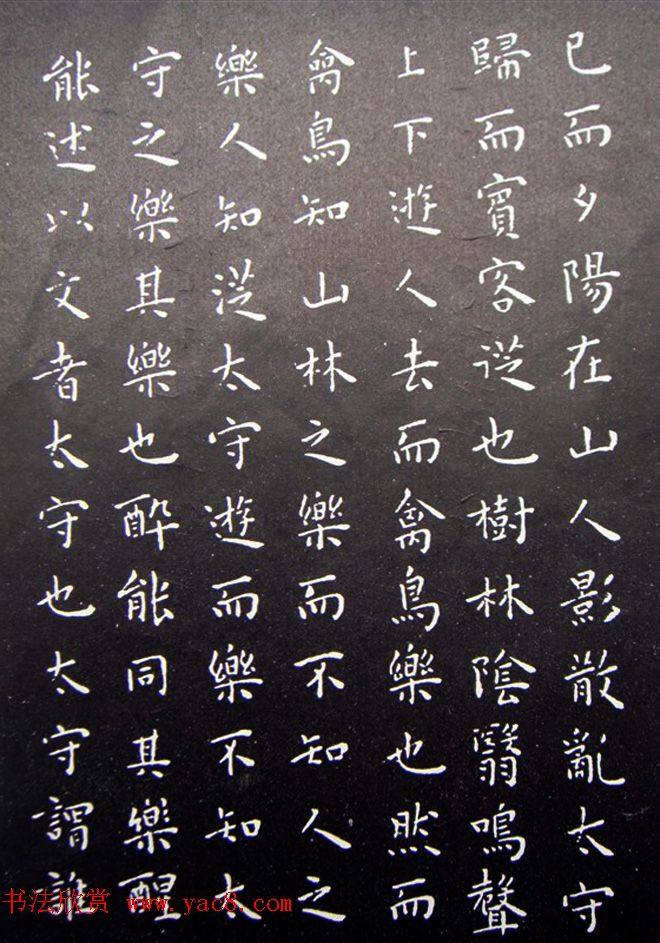 已而夕陽在山人影散亂太守
歸而賓客從也樹林陰翳鳴聲
上下遊人去而禽鳥樂也然而
禽鳥知山林之樂而不知人之
樂人知從太守遊而樂不知太
守之樂其樂也醉能同其樂醒
能述以文者太守也太守謂誰
书法欣赏 www.yac8.com